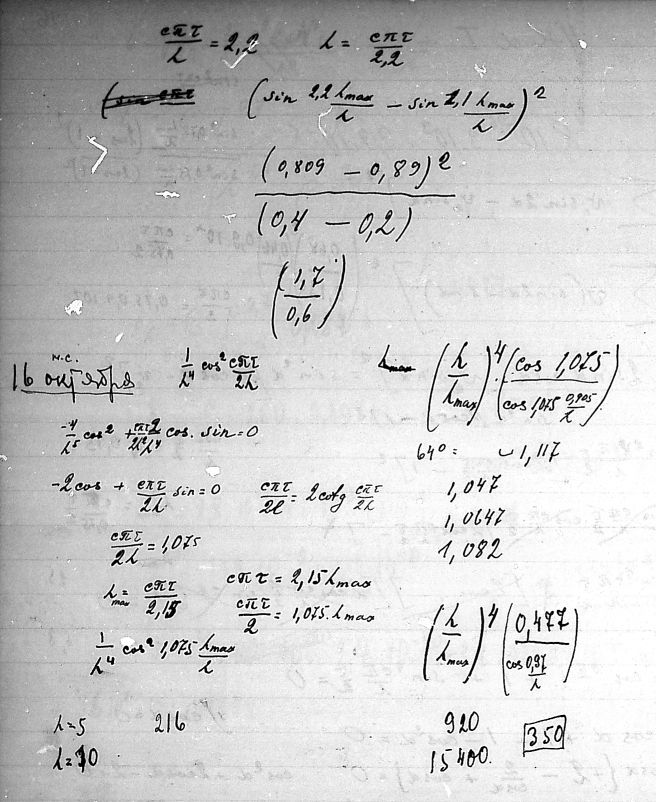 cπτ/λ = 2,2 λ = cπτ/2,2
(sin cπτ (sin 2,2 λmax/λ − sin 1,1 λmax/λ)²
(0,809 − 0,89)²/(0,4 − 0,2)
(1,7/0,6)
н.с.
16 октября 1/λ⁴ cos² cπτ/2λ λmax (λ/λmax)⁴ (cos 1,075/cos 1,075 0,905/λ)
-4/λ⁵ cos² + cπτ2/2λ²λ⁴ cos. sin = 0
64° = 1,117
-2cos + cπτ/2λ sin = 0 cπτ/2λ = 2 cotg cπτ/2λ 1,047
1,0647
cπτ/2λ = 1,075 1,082
λmax = cπτ/2,15 cπτ = 2,15 λmax
cπτ/2 = 1,075. λmax
1/λ⁴ cos² 1,075 λmax/λ (λ/λmax)⁴ (0,477/cos 0,97/λ)
λ=5 216 920 350
λ=10 15400.